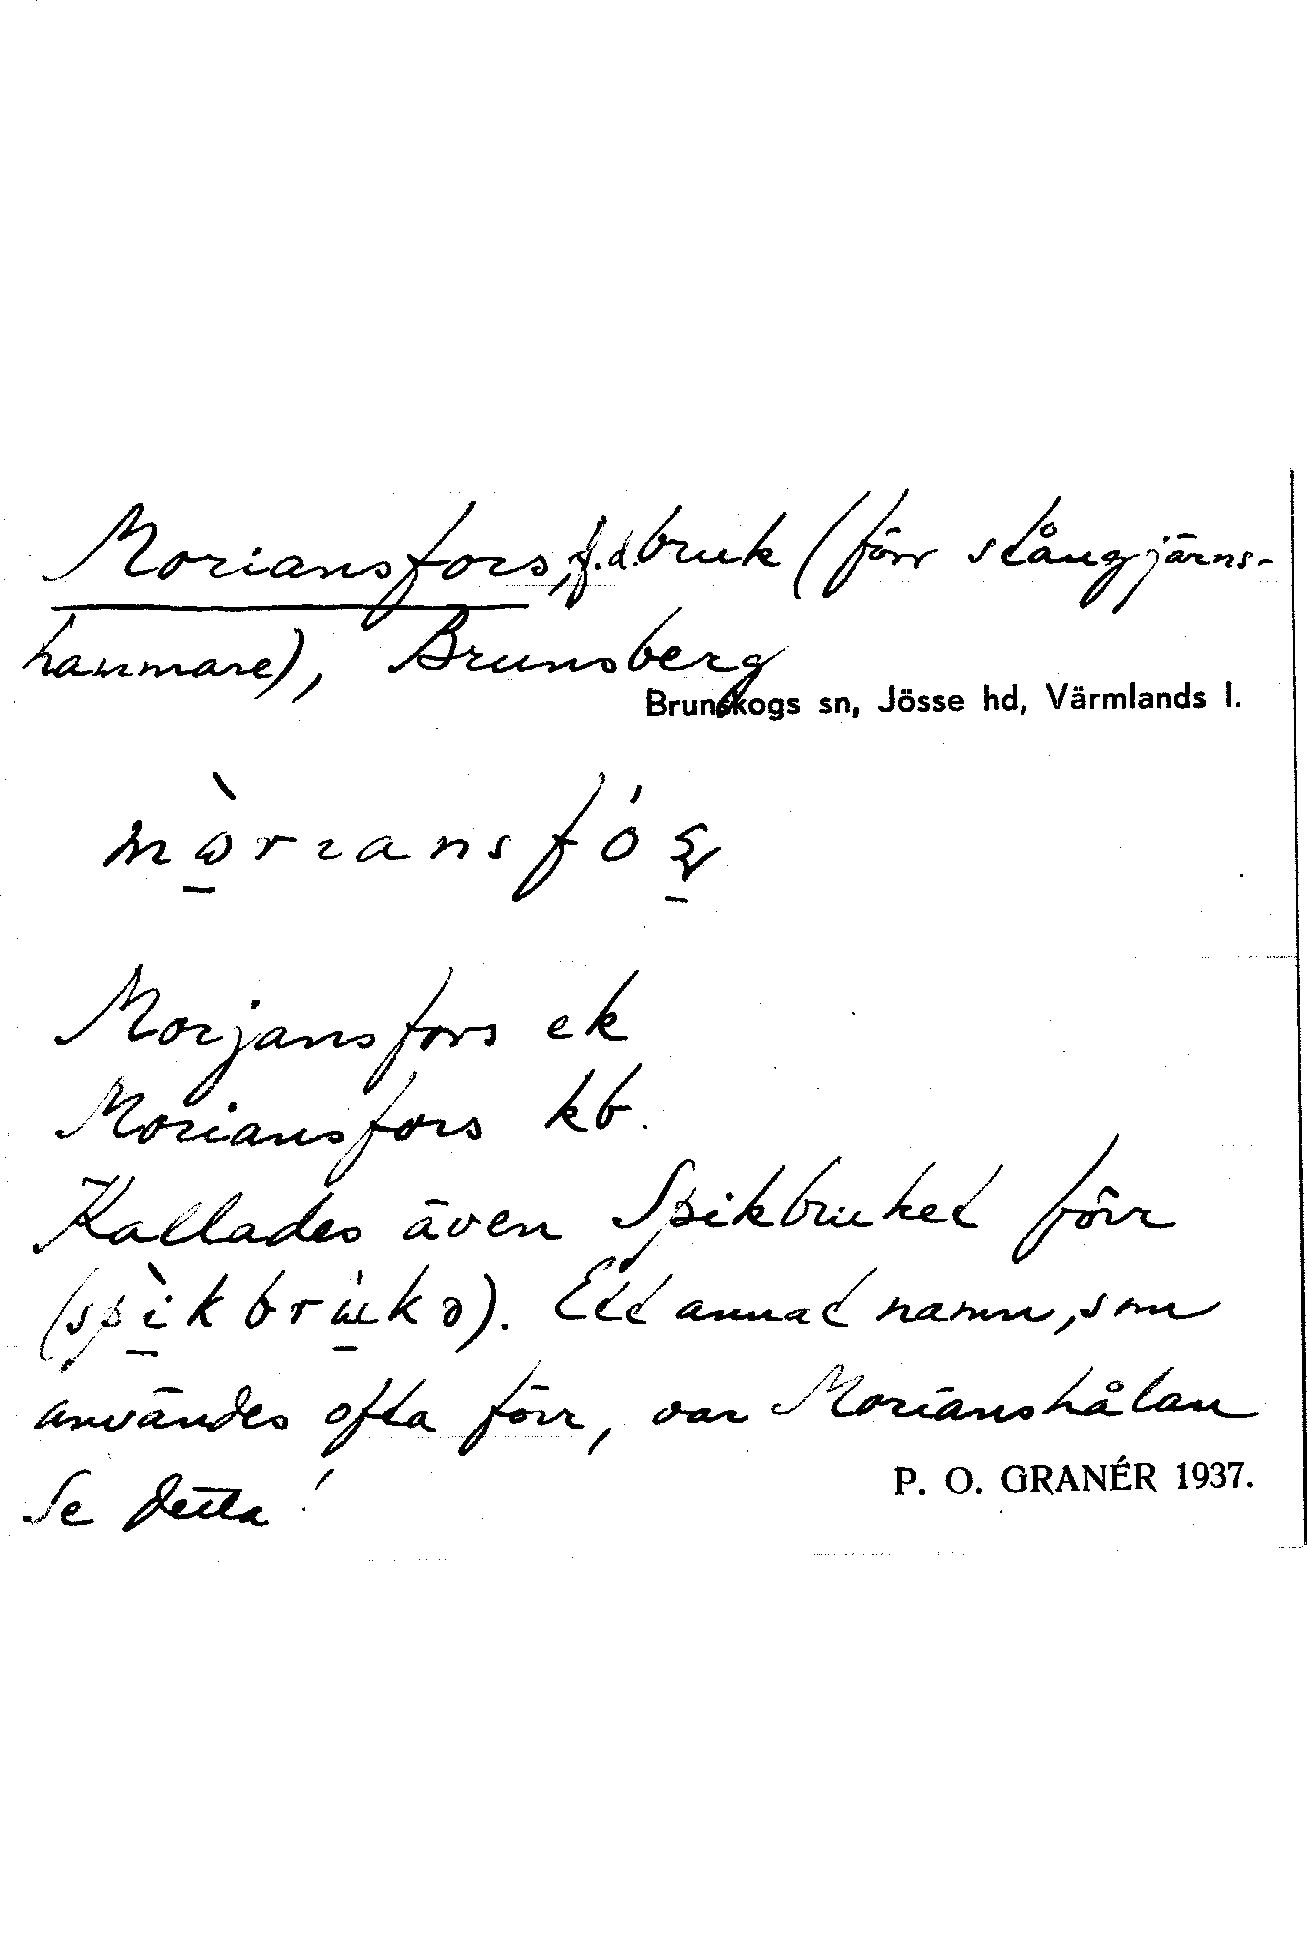 Moriansfors, f.d. bruk (förr stångjärns-
hammare), Brunsberg
Brunskogs sn, Jösse hd, Värmlands l.
Morjansfors ek
Moriansfors kb.
Kallades även Spikbruket förr
(spìkbrùkə). Ett annat namn, som
användes ofta förr, var Morianshålan
Se detta!
P. O. GRANÉR 1937.